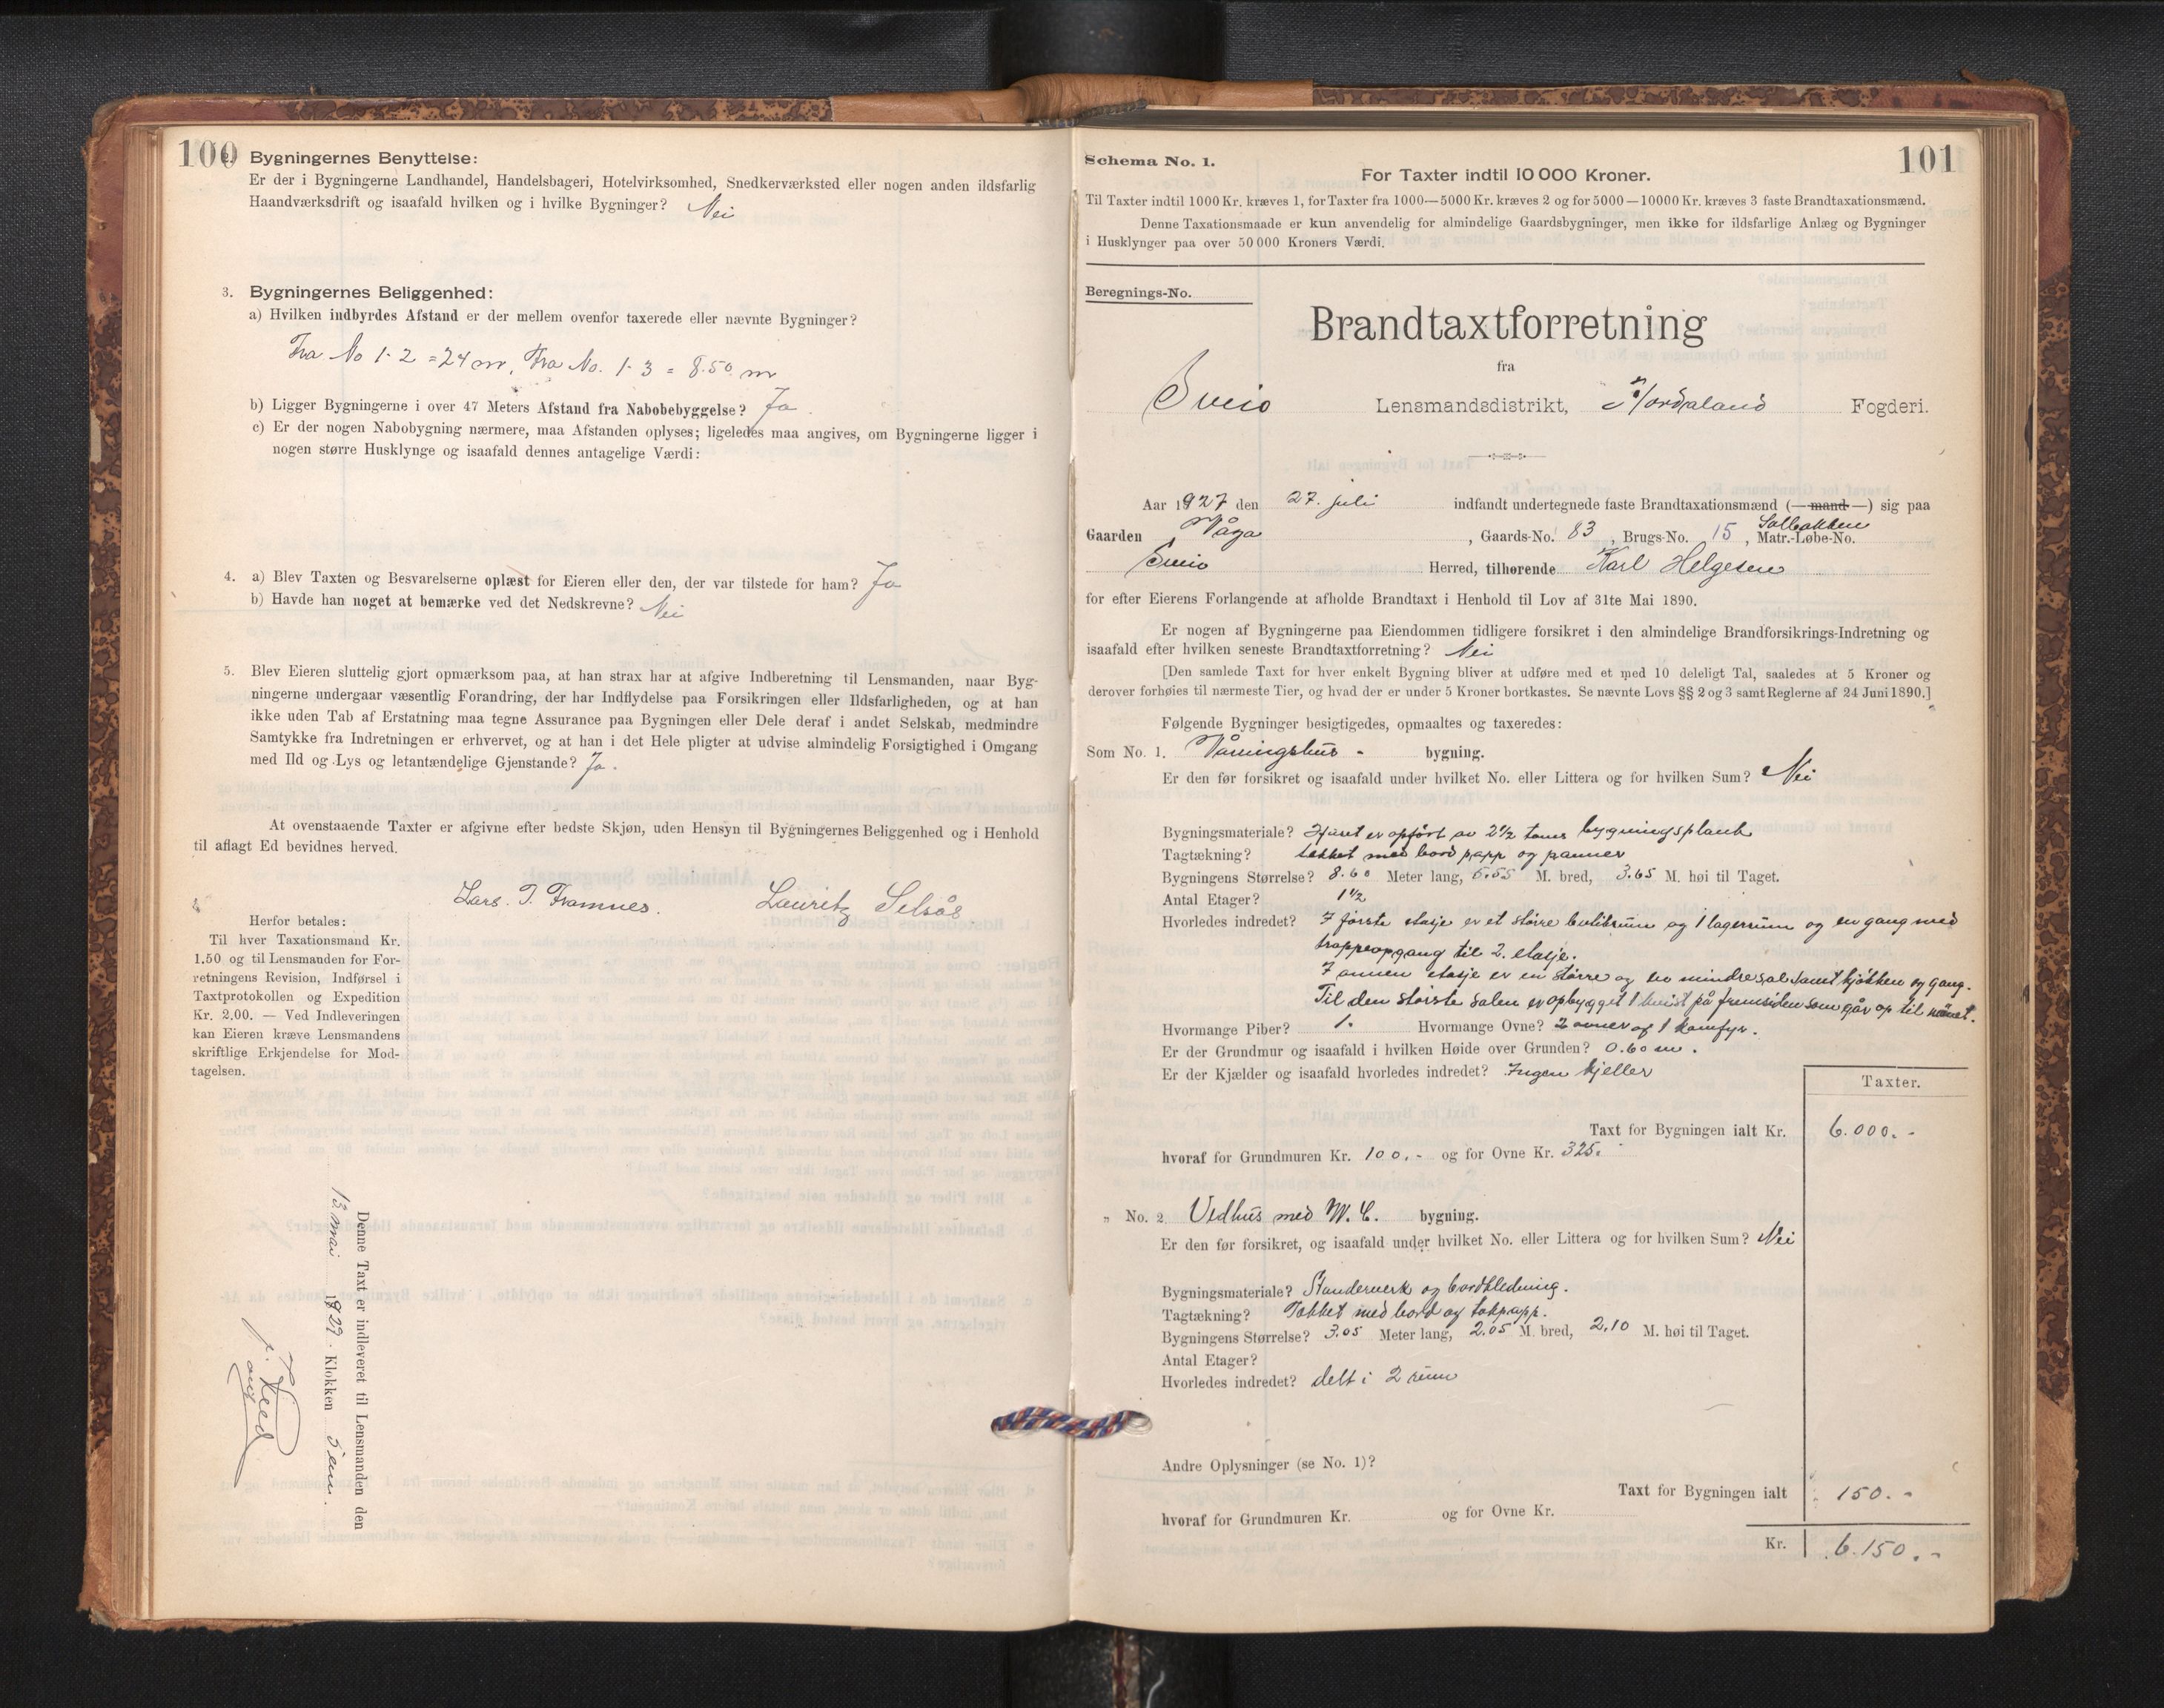 100
2. Bygningernes Benyttelse:
Er der i Bygningerne Landhandel, Handelsbageri, Hotelvirksomhed, Snedkerværksted eller nogen anden ildsfarlig
Haandværksdrift og isaafald hvilken og i hvilke Bygninger? Nei
3. Bygningernes Beliggenhed:
a) Hvilken indbyrdes Afstand er der mellem ovenfor taxerede eller nævnte Bygninger?
Fra No 1-2 = 24 m, Fra No. 1-3 = 8.50 m
b) Ligger Bygningerne i over 47 Meters Afstand fra Nabobebyggelse? Ja.
c) Er der nogen Nabobygning nærmere, maa Afstanden oplyses; ligeledes maa angives, om Bygningerne ligger i
nogen større Husklynge og isaafald dennes antagelige Værdi:
4. a) Blev Taxten og Besvarelserne oplæst for Eieren eller den, der var tilstede for ham? Ja
b) Havde han noget at bemærke ved det Nedskrevne? Nei
5. Blev Eieren sluttelig gjort opmærksom paa, at han strax har at afgive Indberetning til Lensmanden, naar Byg-
ningerne undergaar væsentlig Forandring, der har Indflydelse paa Forsikringen eller Ildsfarligheden, og at han
ikke uden Tab af Erstatning maa tegne Assurance paa Bygningen eller Dele deraf i andet Selskab, medmindre
Samtykke fra Indretningen er erhvervet, og at han i det Hele pligter at udvise almindelig Forsigtighed i Omgang
med Ild og Lys og letantændelige Gjenstande? Ja.
At ovenstaaende Taxter er afgivne efter bedste Skjøn, uden Hensyn til Bygningernes Beliggenhed og i Henhold
til aflagt Ed bevidnes herved.
Lars. T. Framnes. Lauritz Selsås
Herfor betales:
Til hver Taxationsmand Kr.
1.50 og til Lensmanden for For-
retningens Revision, Indførsel i
Taxtprotokollen og Expedition
Kr. 2.00. — Ved Indleveringen
kan Eieren kræve Lensmandens
skriftlige Erkjendelse for Mod-
tagelsen.
Denne Taxt er indleveret til Lensmanden den
13 mai 1927 Klokken 5 em.
101
Schema No. 1.
For Taxter indtil 10 000 Kroner.
Til Taxter indtil 1000 Kr. kræves 1, for Taxter fra 1000—5000 Kr. kræves 2 og for 5000—10000 Kr. kræves 3 faste Brandtaxationsmænd.
Denne Taxationsmaade er kun anvendelig for almindelige Gaardsbygninger, men ikke for ildsfarlige Anlæg og Bygninger
i Husklynger paa over 50 000 Kroners Værdi.
Beregnings-No.
Brandtaxtforretning
fra
Sveio Lensmandsdistrikt, S/Hordaland Fogderi.
Aar 1927 den 27. juli indfandt undertegnede faste Brandtaxationsmænd (—mand—) sig paa
Gaarden Våga, Gaards-No. 83, Brugs-No. 15, Matr.-Løbe-No. Solbakken
Sveio Herred, tilhørende Karl Helgesen
for efter Eierens Forlangende at afholde Brandtaxt i Henhold til Lov af 31te Mai 1890.
Er nogen af Bygningerne paa Eiendommen tidligere forsikret i den almindelige Brandforsikrings-Indretning og
isaafald efter hvilken seneste Brandtaxtforretning? Nei
[Den samlede Taxt for hver enkelt Bygning bliver at udføre med et med 10 deleligt Tal, saaledes at 5 Kroner og
derover forhøies til nærmeste Tier, og hvad der er under 5 Kroner bortkastes. Se nævnte Lovs §§ 2 og 3 samt Reglerne af 24 Juni 1890.]
Følgende Bygninger besigtigedes, opmaaltes og taxeredes:
Som No. 1. Våningshus - bygning.
Er den før forsikret og isaafald under hvilket No. eller Littera og for hvilken Sum? Nei
Bygningsmateriale? Huset er opført av 2½ toms bygningsplank
Tagtækning? tekket med bord papp og panner
Bygningens Størrelse? 8.60 Meter lang, 6.55 M. bred, 3.65 M. høi til Taget.
Antal Etager? 1½
Hvorledes indredet? I første etasje er et større butikrum og 1 lagerrum og en gang med
trappeopgang til 2. etasje.
I annen etasje er en større og en mindre sal samt kjøkken og gang.
Til den største salen er opbygget 1 kvist på fremsiden som går op til mønet.
Hvormange Piber? 1. Hvormange Ovne? 2 ovner og 1 komfyr.
Er der Grundmur og isaafald i hvilken Høide over Grunden? 0.60 m.
Er der Kjælder og isaafald hvorledes indredet? Ingen kjeller
Taxter.
Taxt for Bygningen ialt Kr. 6.000.-
hvoraf for Grundmuren Kr. 100.- og for Ovne Kr. 325.
" No. 2 Vedhus med W. C. bygning.
Er den før forsikret, og isaafald under hvilket No. eller Littera og for hvilken Sum? Nei
Bygningsmateriale? Standerverk og bordkledning.
Tagtækning? Tekket med bord og takpapp.
Bygningens Størrelse? 3.05 Meter lang, 2.05 M. bred, 2.10 M. høi til Taget.
Antal Etager?
Hvorledes indredet? delt i 2 rum
Andre Oplysninger (se No. 1)?
Taxt for Bygningen ialt 150.-
hvoraf for Grundmuren Kr. og for Ovne Kr.
Kr. 6.150.-